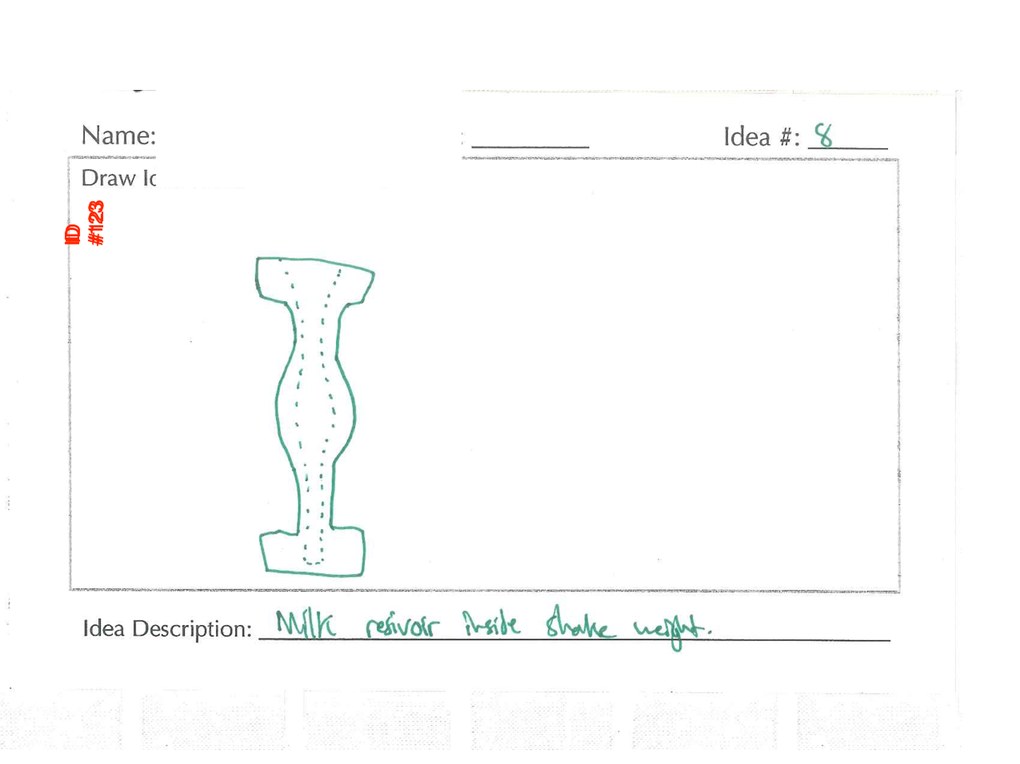 Name: : Idea #: 8
Draw Id
ID
#123
Idea Description: Milk resivoir inside shake weight.